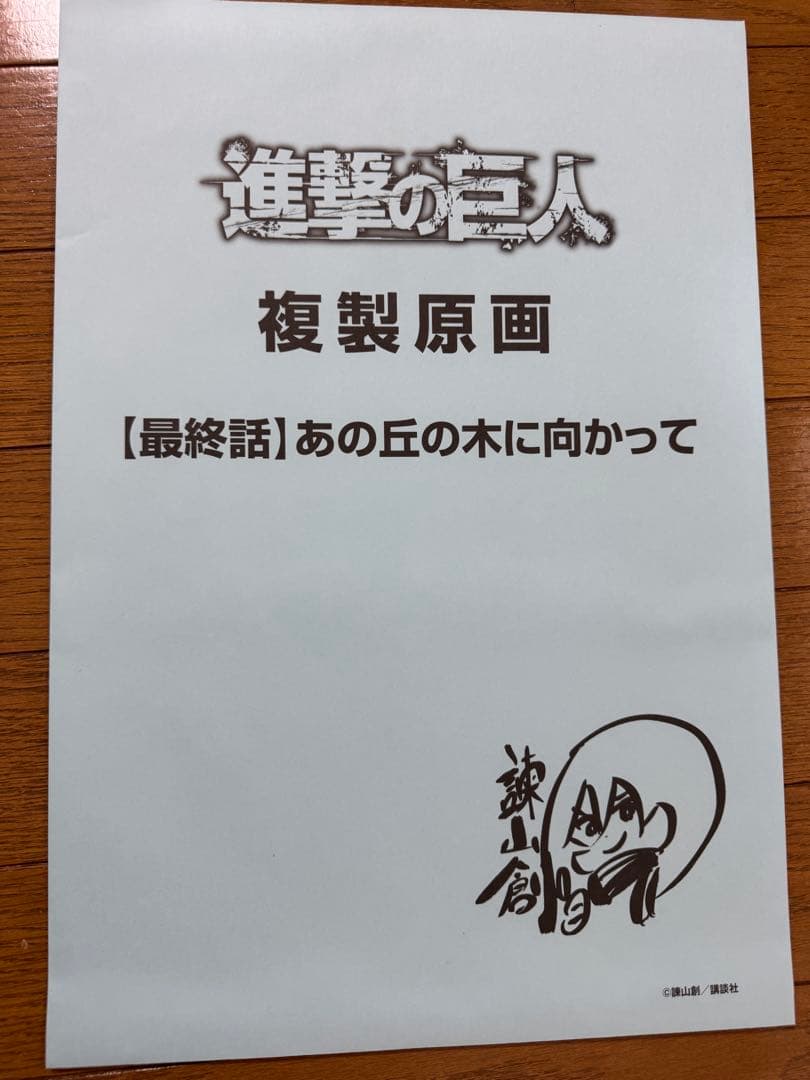 進撃の巨人
複製原画
【最終話】あの丘の木に向かって
諫山創
©諫山創／講談社